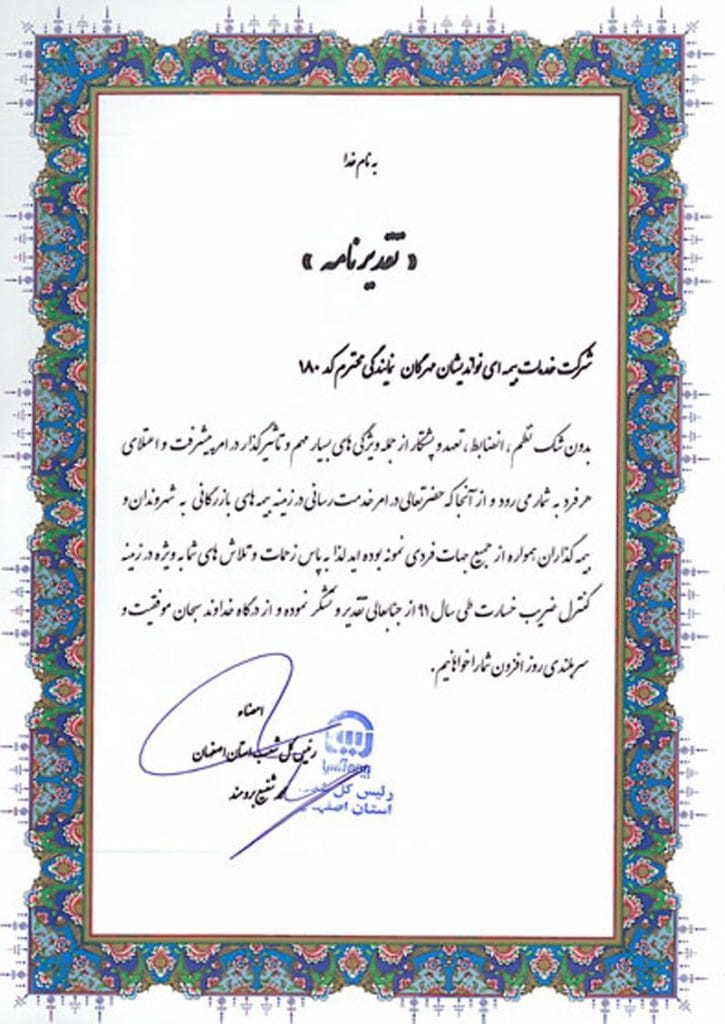 به نام خدا
« تقدیرنامه »
شرکت خدمات بیمه ای نواندیشان مهرگان نمایندگی محترم کد ۱۸۰
بدون شک نظم ، انضباط ، تعهد و پشتکار از جمله ویژگی های بسیار مهم و تاثیرگذار در امر پیشرفت و اعتلای
هر فرد به شمار می رود و از آنجا که حضرتعالی در امر خدمت رسانی در زمینه بیمه های بازرگانی به شهروندان و
بیمه گذاران همواره از جمیع جهات فردی نمونه بوده اید لذا به پاس زحمات و تلاش های شما به ویژه در زمینه
کنترل ضریب خسارت طی سال ۹۱ از جنابعالی تقدیر و تشکر نموده و از درگاه خداوند سبحان موفقیت و
سربلندی روز افزون شما را خواهانیم .
امضاء
رئیس کل شعب استان اصفهان
محمد شفیع برومند
بیمه آسیا
رئیس کل
استان